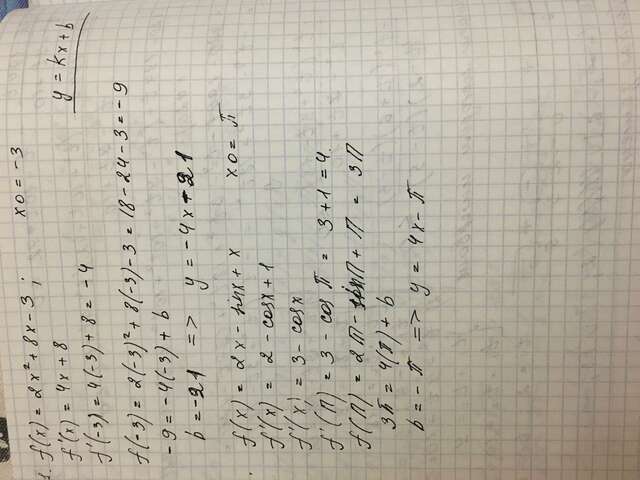 y = kx + b
1. f(x) = 2x² + 8x - 3 ; x0 = -3
f'(x) = 4x + 8
f'(-3) = 4(-3) + 8 = -4
f(-3) = 2(-3)² + 8(-3) - 3 = 18 - 24 - 3 = -9
-9 = -4(-3) + b
b = -21 => y = -4x - 21
f(x) = 2x - sinx + x x0 = π
f'(x) = 2 - cosx + 1
f'(x) = 3 - cosx
f'(π) = 3 - cos π = 3 + 1 = 4.
f(π) = 2π - sinπ + π = 3π
3π = 4(π) + b
b = -π => y = 4x - π